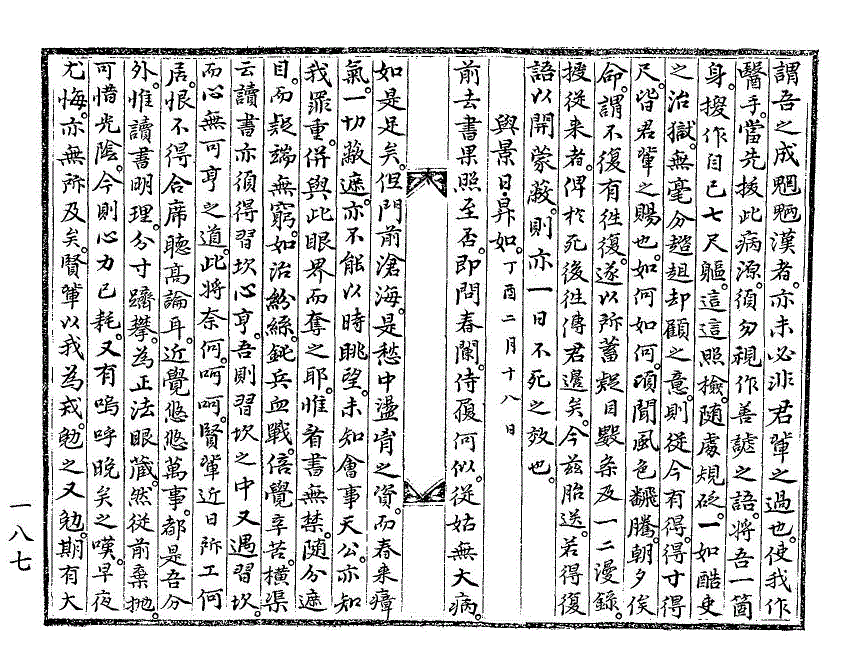 謂吾之成魍魎漢者。亦未必非君軰之過也。使我作
醫手。當先拔此病源。須勿視作善謔之語。將吾一箇
身。搜作自己七尺軀。這這照撿。隨處規砭。一如酷吏
之治獄。無毫分趑趄却顧之意。則從今有得。得寸得
尺。皆君軰之賜也。如何如何。頃聞風色飜騰。朝夕俟
命。謂不復有往復。遂以所蓄疑目數条及一二漫錄。
授從来者。俾於死後往傳君邊矣。今玆胎送。若得復
語以開蒙蔽。則亦一日不死之效也。
與景日昇如。丁酉二月十八日
前去書果照至否。即問春闌。侍履何似。從姑無大病。
如是足矣。但門前滄海。是愁中盪胷之資。而春来瘴
氣。一切蔽遮。亦不能以時眺望。未知會事天公。亦知
我罪重。併與此眼界而奪之耶。惟看書無禁。隨分遮
目。而疑端無窮。如治紛絲。鈍兵血戰。倍覺辛苦。橫渠
云讀書亦須得習坎心亨。吾則習坎之中又遇習坎。
而心無可亨之道。此將奈何。呵呵。賢軰近日所工何
居。恨不得合席聽高論耳。近覺悠悠萬事。都是吾分
外。惟讀書明理。分寸躋攀。為正法眼藏。然從前棄抛。
可惜光陰。今則心力已耗。又有嗚呼晩矣之嘆。早夜
尤悔。亦無所及矣。賢軰以我為戒。勉之又勉。期有大
一八七